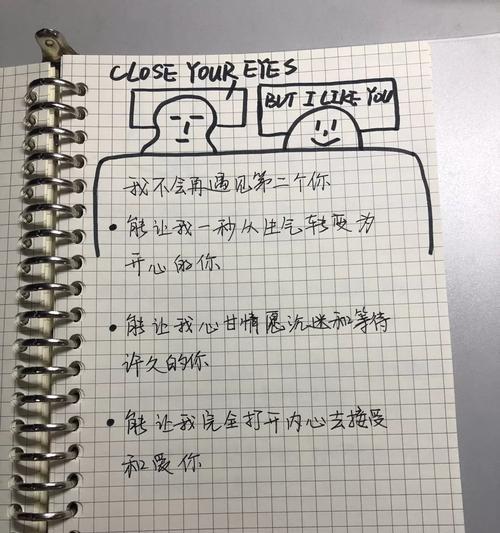 CLOSE YOUR EYES
BUT I LIKE YOU
我不会再遇见第二个你
• 能让我一秒从生气转变为
开心的你
• 能让我心甘情愿沉迷和等待
许久的你
• 能让我完全打开内心去接受
和爱你